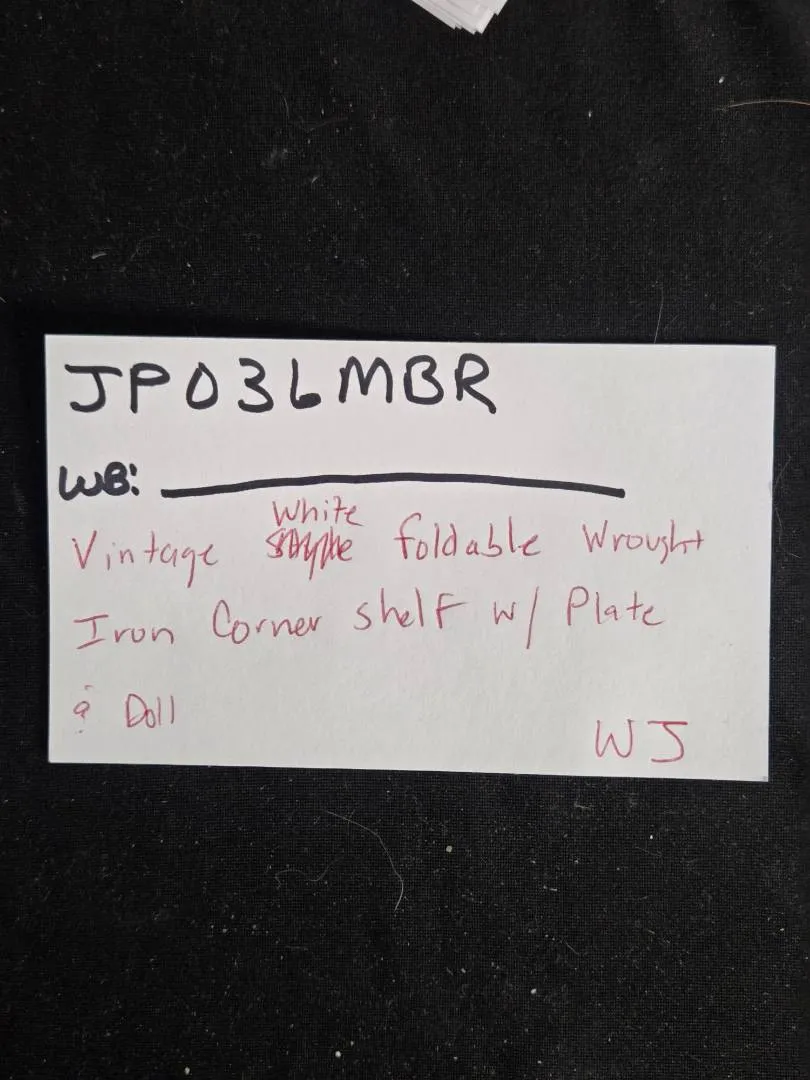 JP036MBR
WB:
White
Vintage foldable Wrought
Iron Corner shelf w/ Plate
& Doll
WJ